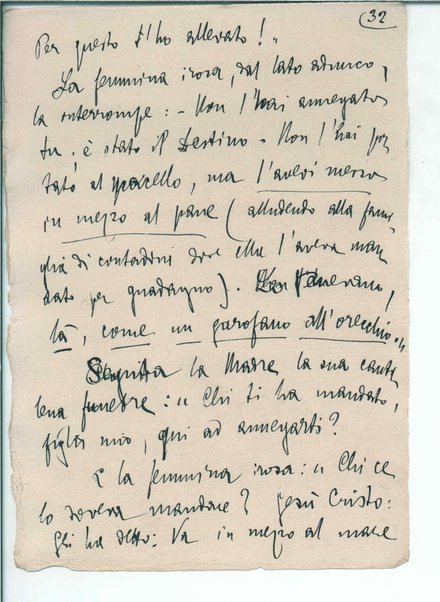 32
Per questo t'ho allevato! „
La femmina irosa, dal lato adunco,
la interrompe: - Non l'hai annegato
tu, è stato il Destino - Non l'hai por
tato al macello, ma l'avevi messo
in mezzo al pane (alludendo alla fami
glia di contadini dove ella l'aveva man
dato per guadagno). Lo tenevano,
là, come un garofano all'orecchio. „
Seguita la Madre la sua canti
lena funebre: „ Chi ti ha mandato,
figlio mio, qui ad annegarti?
E la femmina irosa: „ Chi ce
lo doveva mandare? Gesù Cristo:
gli ha detto: Va in mezzo al mare